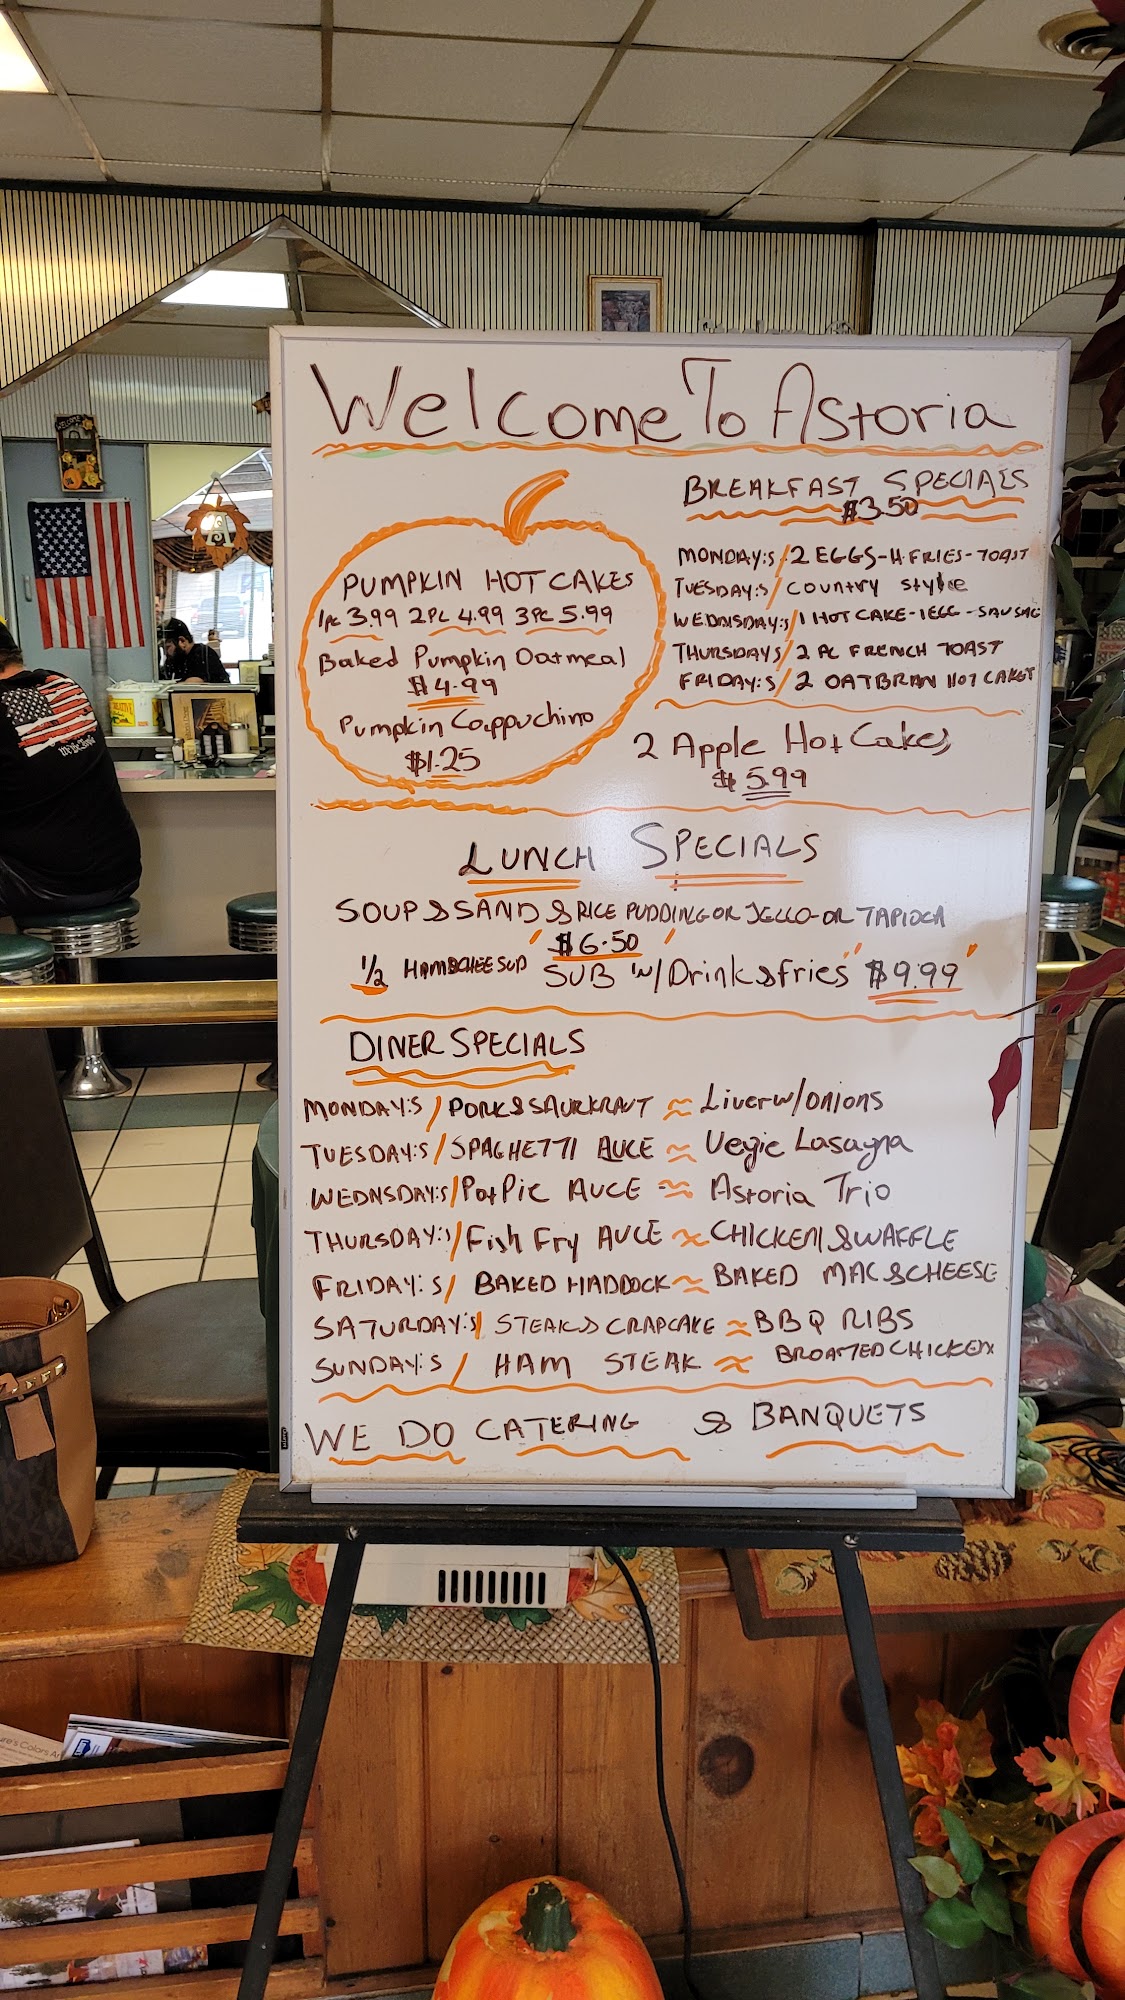 Welcome To Astoria
PUMPKIN HOT CAKES
1pc 3.99 2PC 4.99 3PC 5.99
Baked Pumpkin Oatmeal
$4.99
Pumpkin Cappuchino
$1.25
BREAKFAST SPECIALS
$3.50
MONDAY:S/2 EGGS-H.FRIES-TOAST
TUESDAY:S/ COUNTRY STYLE
WEDNISDAY:S/1 HOT CAKE-1EGG-SAUSAGE
THURSDAYS/2 PC FRENCH TOAST
FRIDAY:S/2 OATBRAN HOT CAKES
2 Apple Hot Cakes
$5.99
LUNCH SPECIALS
SOUP & SAND & RICE PUDDING OR JELLO-OR TAPIOCA
"$6.50"
1/2 HAM&CHEESUD SUB W/Drink&fries "$9.99"
DINER SPECIALS
MONDAY:S/PORK&SAURKRAUT ≈ Liver w/onions
TUESDAY:S/SPAGHETTI AUCE ≈ Vegie Lasagna
WEDNSDAY:S/Pot Pie AUCE ≈ Astoria Trio
THURSDAY:S/Fish Fry AUCE ≈ CHICKEN & WAFFLE
FRIDAY:S/ BAKED HADDOCK ≈ BAKED MAC & CHEESE
SATURDAY:S/ STEAK & CRAPCAKE ≈ BBQ RIBS
SUNDAY:S/ HAM STEAK ≈ BROASTED CHICKEN
WE DO CATERING & BANQUETS
We the People
WELCOME